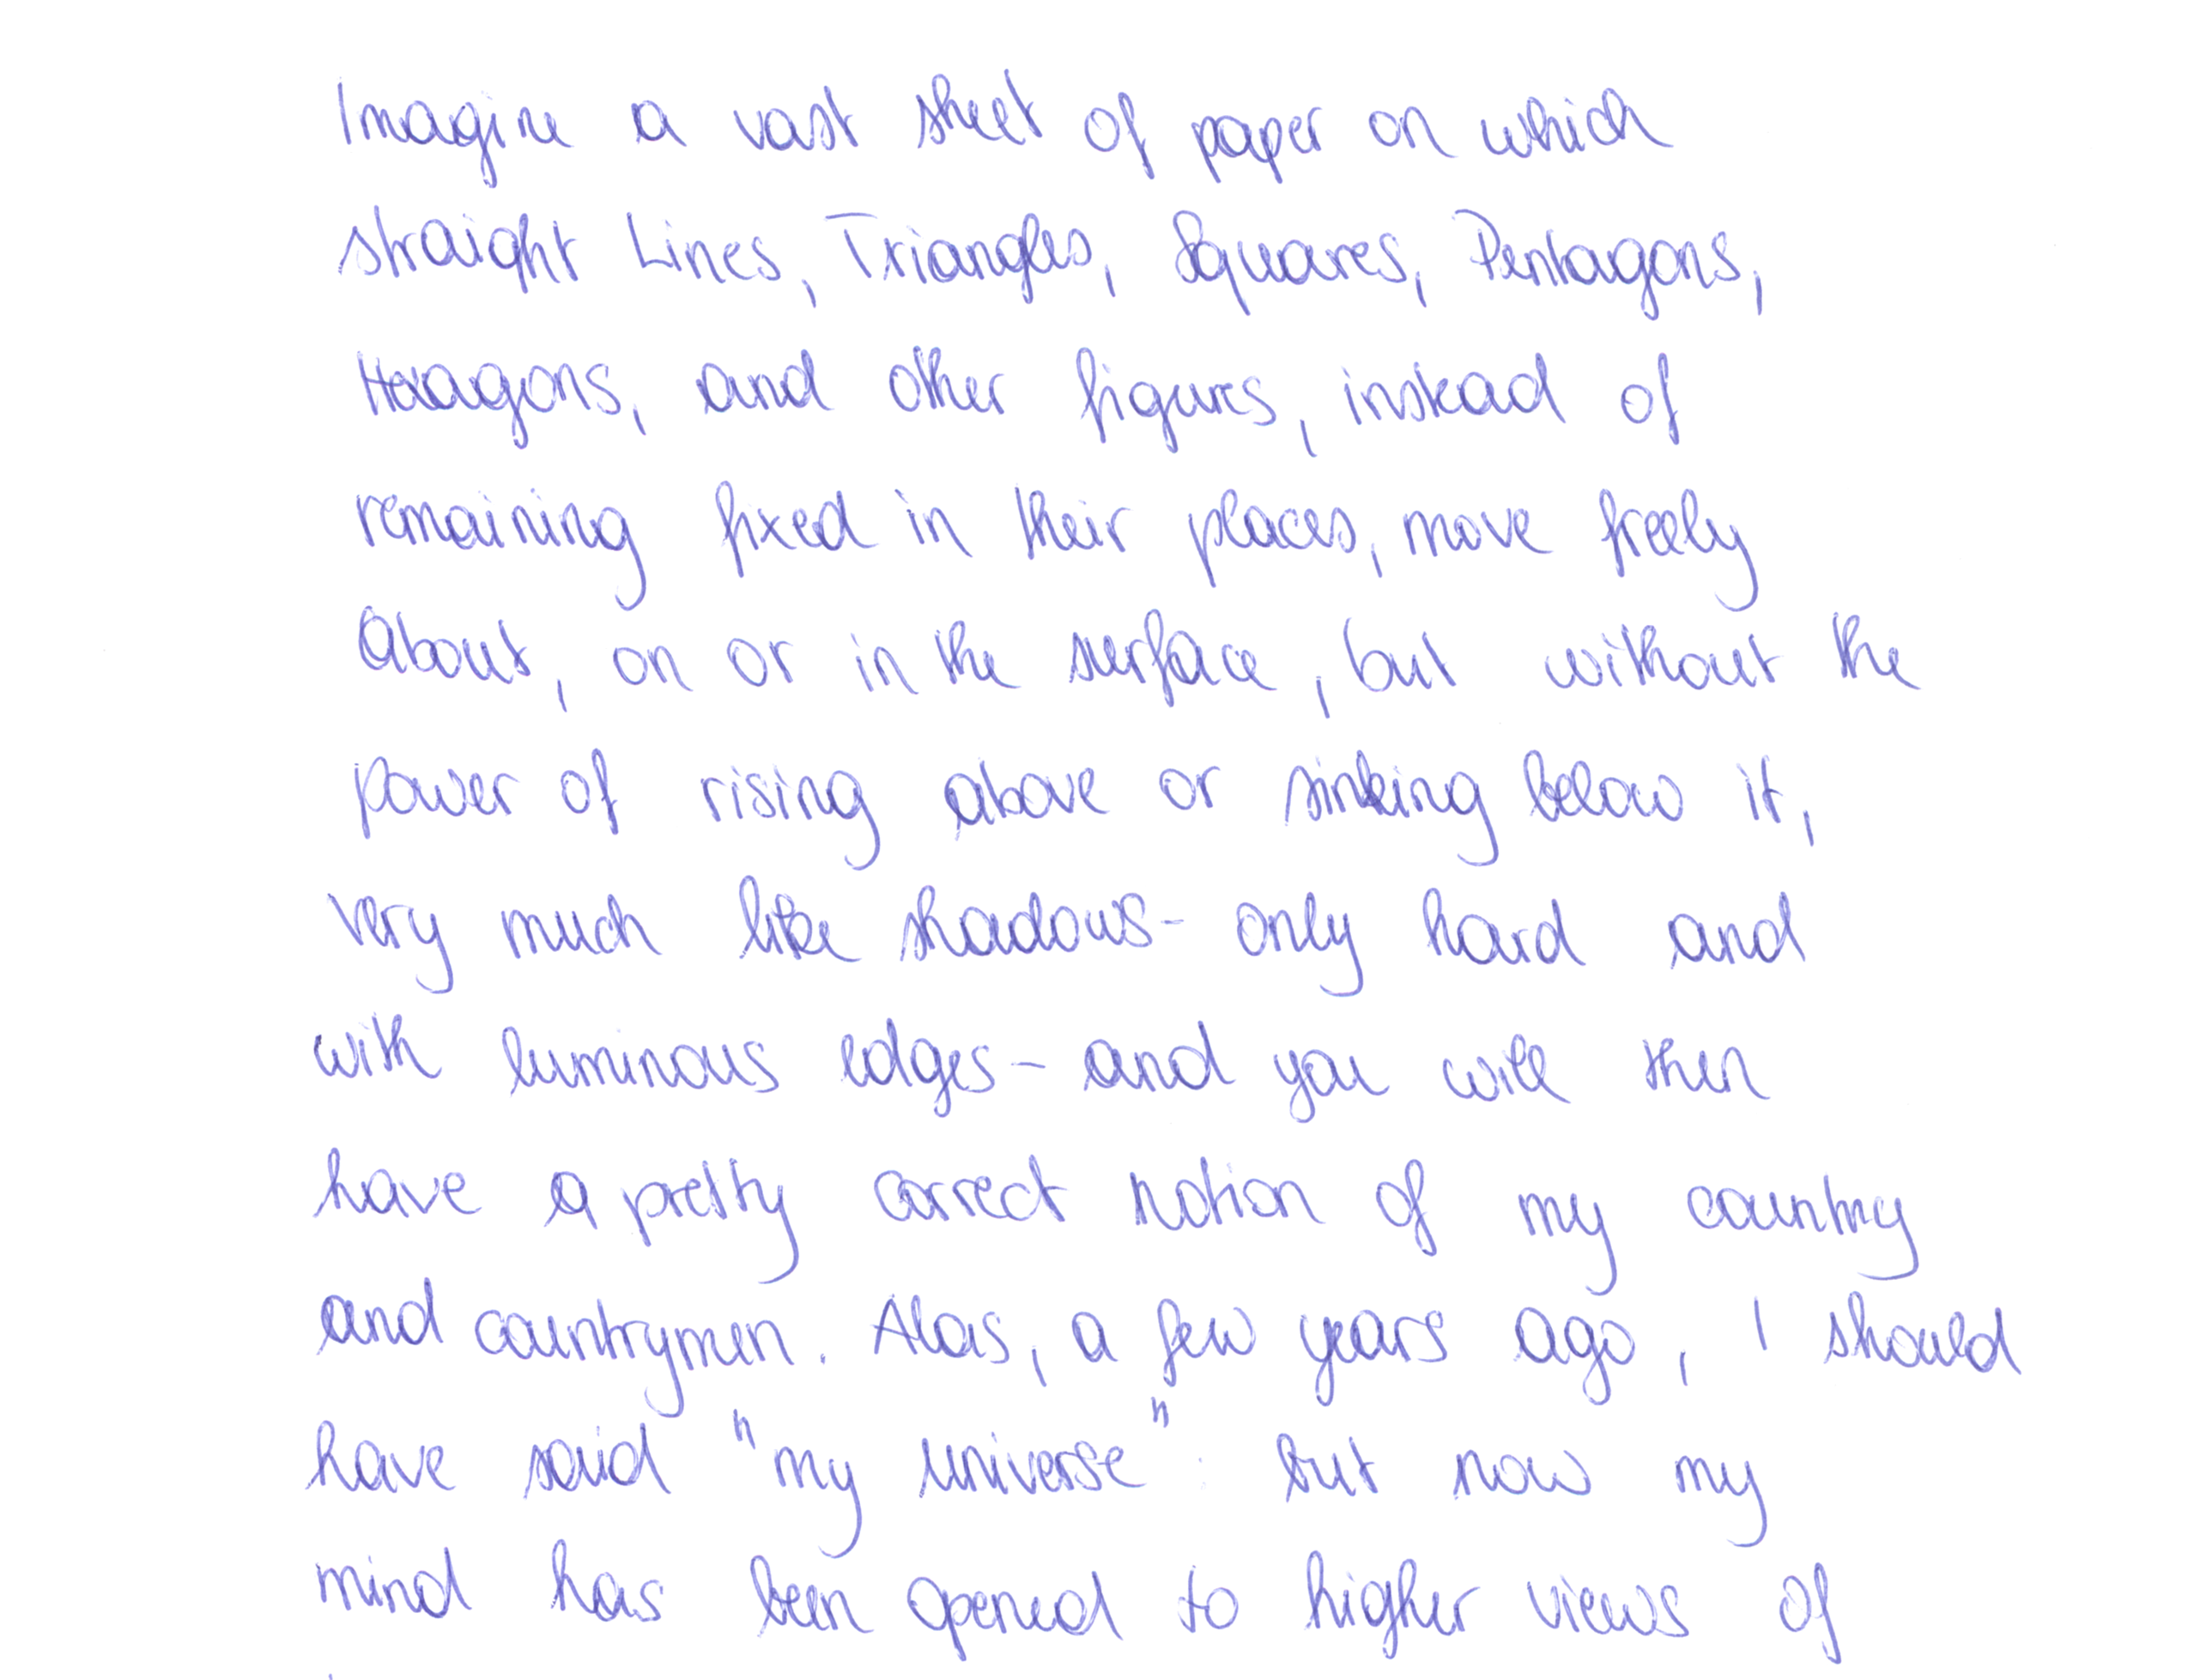 Imagine a vast sheet of paper on which
straight Lines, Triangles, Squares, Pentagons,
Hexagons, and other figures, instead of
remaining fixed in their places, move freely
about, on or in the surface, but without the
power of rising above or sinking below it,
very much like shadows - only hard and
with luminous edges - and you will then
have a pretty correct notion of my country
and countrymen. Alas, a few years ago, I should
have said "my universe": but now my
mind has been opened to higher views of